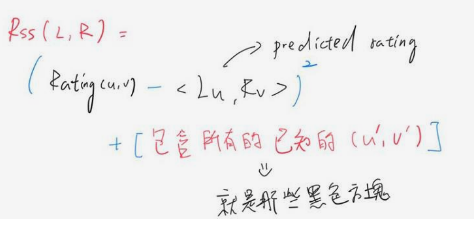 Rss(L,R) =
predicted rating
(Rating(u,v) - <Lu,Rv>)²
+ [包含所有的已知的(u',v')]
就是那些黑色方塊